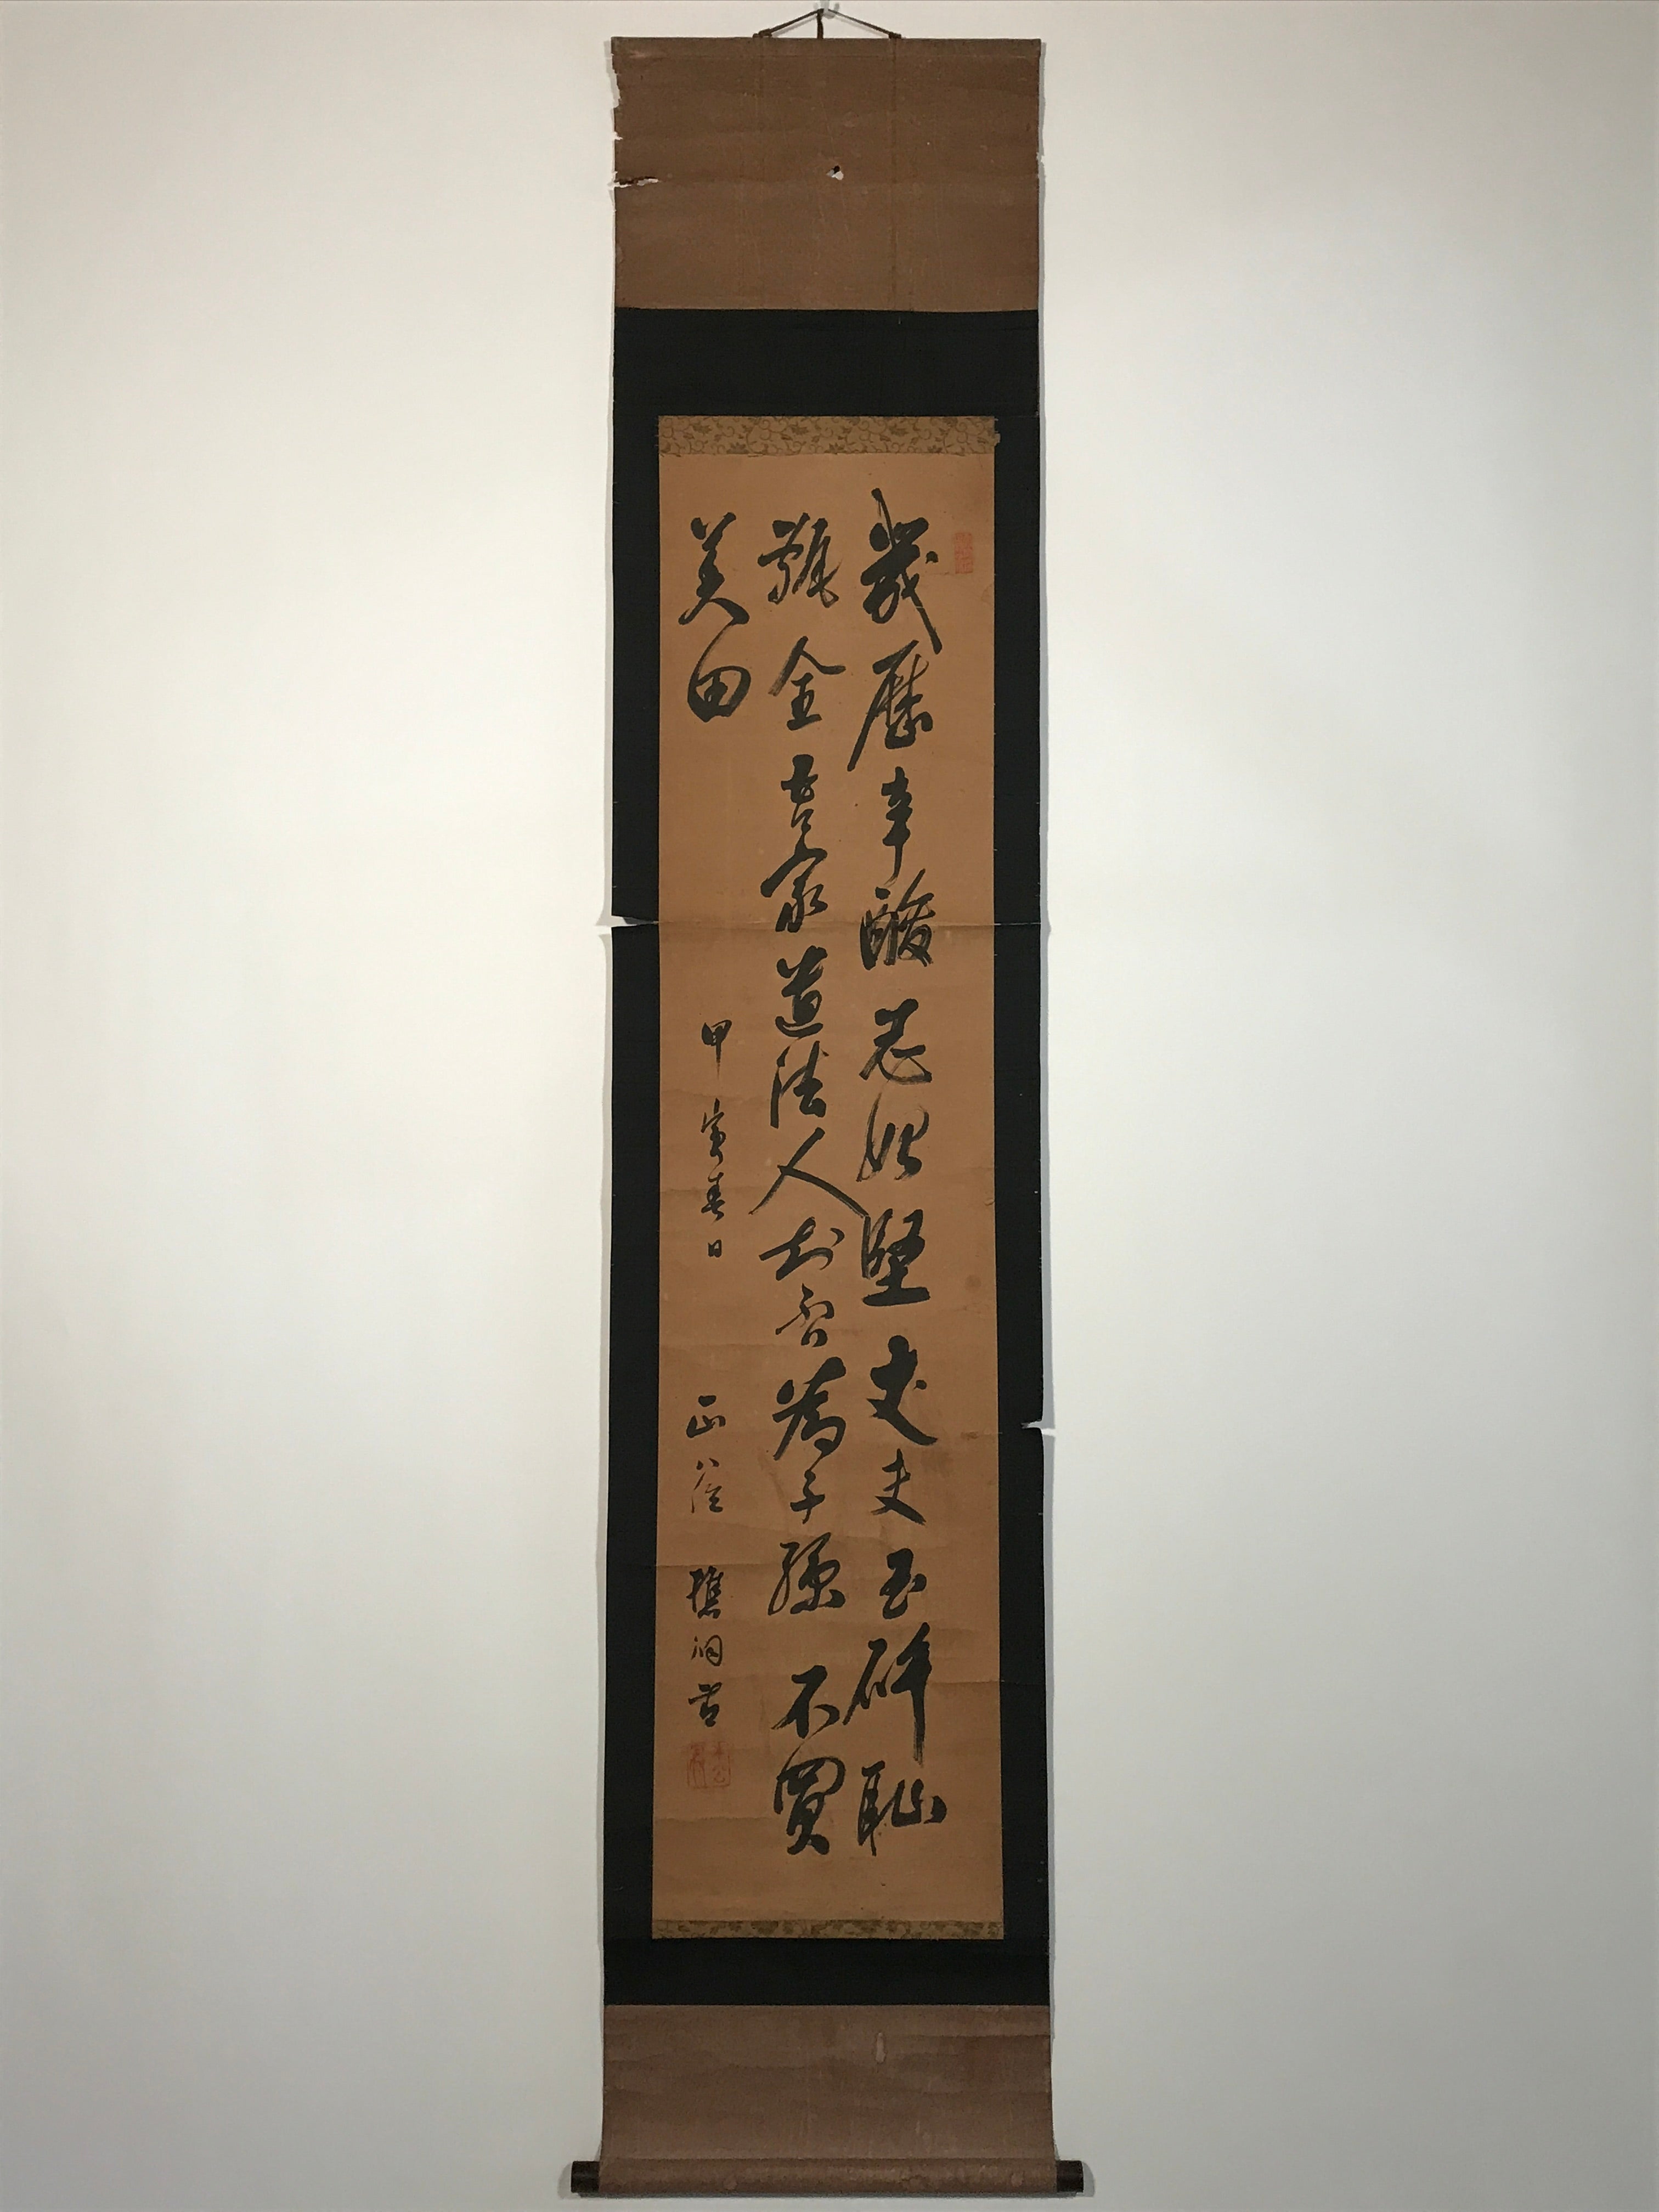 幾歴辛酸志始堅丈夫玉砕恥
甎全吾家遺法人知否為子孫不買
美田
甲寅春日
樵洞書